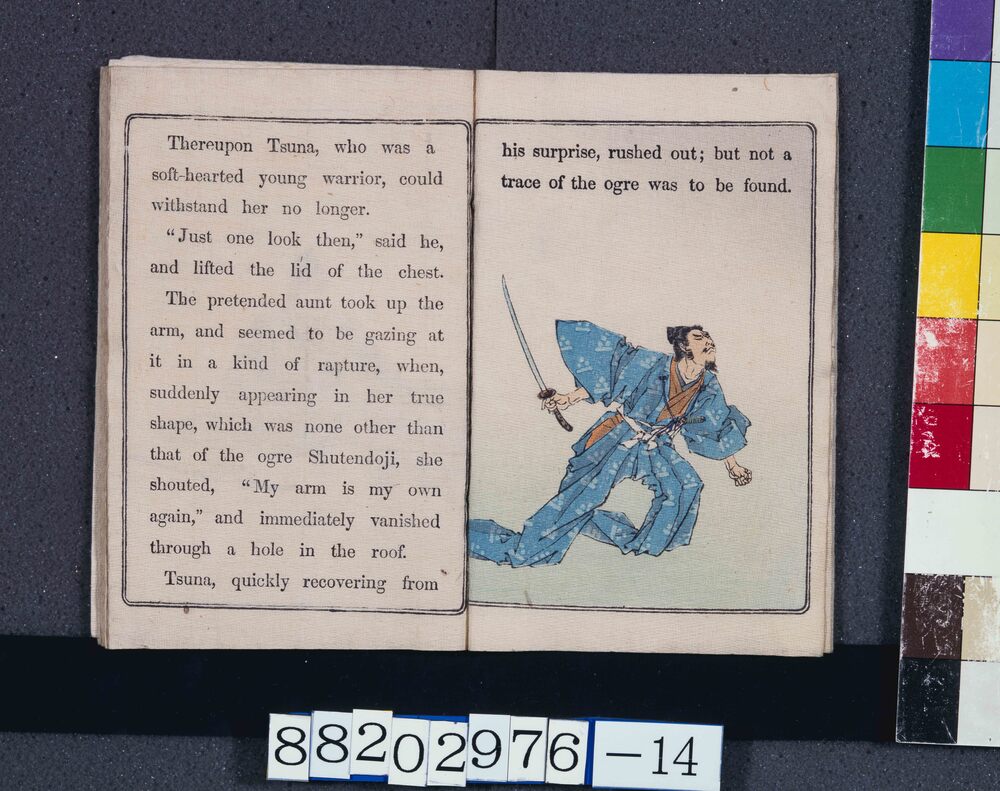 Thereupon Tsuna, who was a
soft-hearted young warrior, could
withstand her no longer.
"Just one look then," said he,
and lifted the lid of the chest.
The pretended aunt took up the
arm, and seemed to be gazing at
it in a kind of rapture, when,
suddenly appearing in her true
shape, which was none other than
that of the ogre Shutendoji, she
shouted, "My arm is my own
again," and immediately vanished
through a hole in the roof.
Tsuna, quickly recovering from
his surprise, rushed out; but not a
trace of the ogre was to be found.
88202976-14